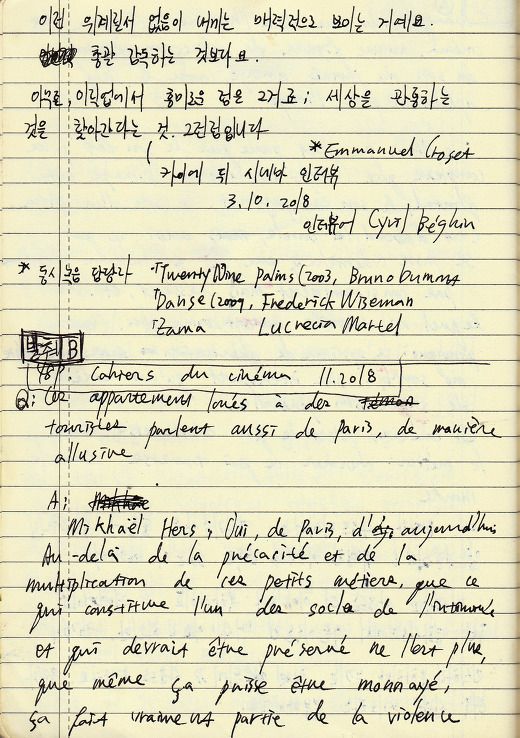 이런 위계질서 없음이 내게는 매력적으로 보이는 거예요.
총괄 감독하는 것보다요.
아무튼, 이 작업에서 흥미로운 점은 그거죠; 세상을 관통하는
것을 찾아간다는 것. 그럼입니다
* Emmanuel Croset
카이에 뒤 시네마 인터뷰
3. 10. 2018
인터뷰어 Cyril Béghin
* 동시녹음 담당자 Twentynine Palms (2003, Bruno Dumont
Danse (2009, Frederick Wiseman
Zama Lucrecia Martel
발췌 B
48p. Cahiers du cinéma 11.2018
Q: Ces appartement loués à des
touristes parlent aussi de Paris, de manière
allusive
A:
Mikhaël Hers ; Oui, de Paris, d'aujourd'hui
Au-delà de la précarité et de la
multiplication de ces petits métiers, que ce
qui constitue l'un des socles de l'intimité
et qui devrait être préservé ne l'est plus,
que même ça puisse être monnayé,
ça fait vraiment partie de la violence